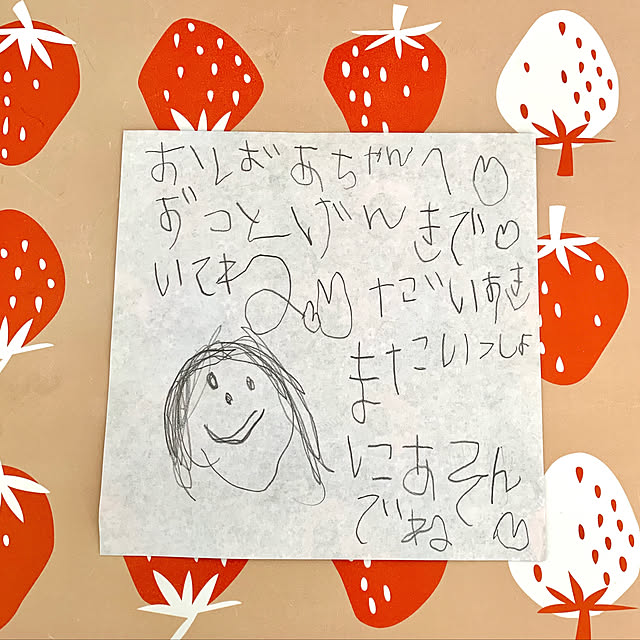 おおばあちゃんへ
ずっとげんきで
いてね
だいすき
またいっしょ
にあそん
でね